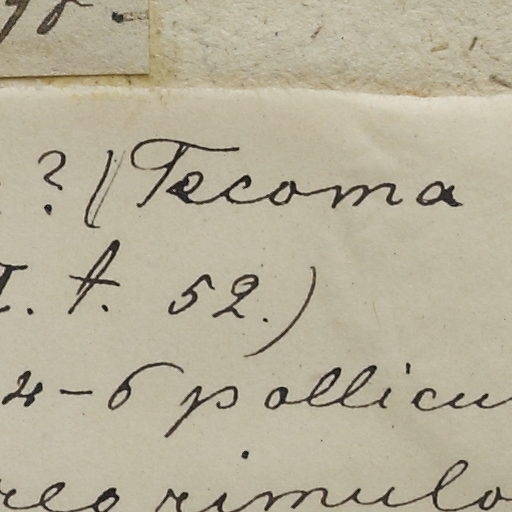 ? (Tecoma
t. 52.)
4-6 pollicu
rimulo